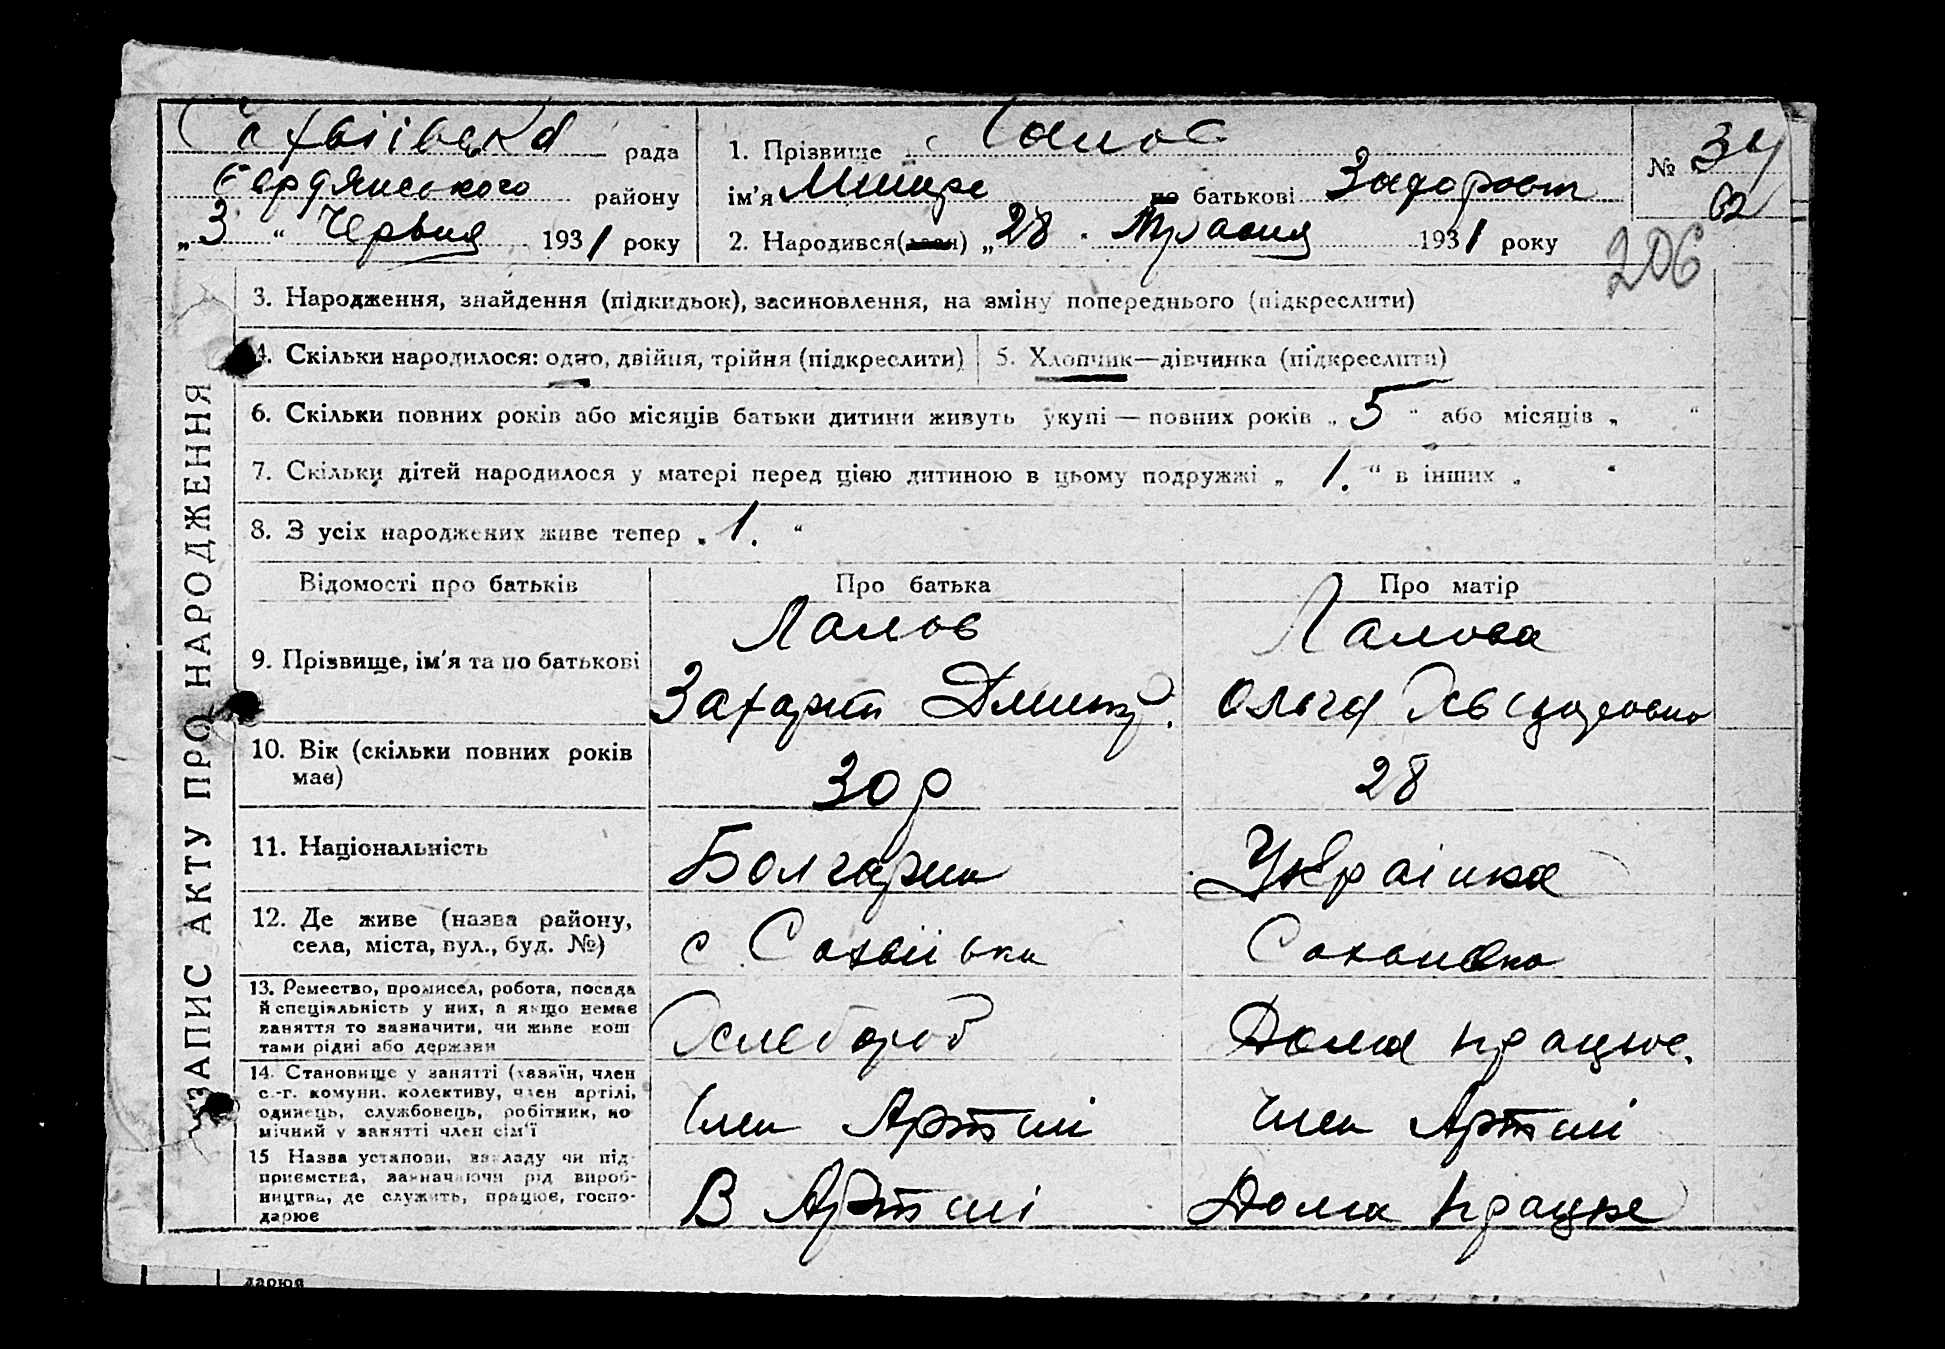 рада
Бердянського району
„3 “ Червня 1931 року
1. Прізвище
ім'я по батькові
2. Народився(лася) „28 " Травня 1931 року
№ 34
62
206
ЗАПИС АКТУ ПРО НАРОДЖЕННЯ
3. Народження, знайдення (підкидьок), засиновлення, на зміну попереднього (підкреслити)
4. Скільки народилося: одно, двійня, трійня (підкреслити)
5. Хлопчик—дівчинка (підкреслити)
6. Скільки повних років або місяців батьки дитини живуть укупі — повних років „ 5 “ або місяців „ “
7. Скільки дітей народилося у матері перед цією дитиною в цьому подружжі „ 1. “ в інших „ “
8. З усіх народжених живе тепер „ 1. “
Відомості про батьків
Про батька
Про матір
9. Прізвище, ім'я та по батькові
Палов
Захарий Дмитр.
Палова
Ольга
10. Вік (скільки повних років
має)
30 р
28
11. Національність
Болгарин
Українка
12. Де живе (назва району,
села, міста, вул., буд. №)
с
13. Ремество, промисел, робота, посада
й спеціяльність у них, а якщо немає
заняття то зазначити, чи живе кош
тами рідні або держави
Хлебороб
Дома працює.
14. Становище у занятті (хазяїн, член
с.-г. комуни, колективу, член артілі,
одинець, службовець, робітник, по
мічний у занятті член сім'ї
Член Артілі
член Артілі
15 Назва установи, закладу чи під-
приємства, зазначаючи рід вироб-
ництва, де служить, працює, госпо-
дарює
В Артілі
Дома працює
дарює